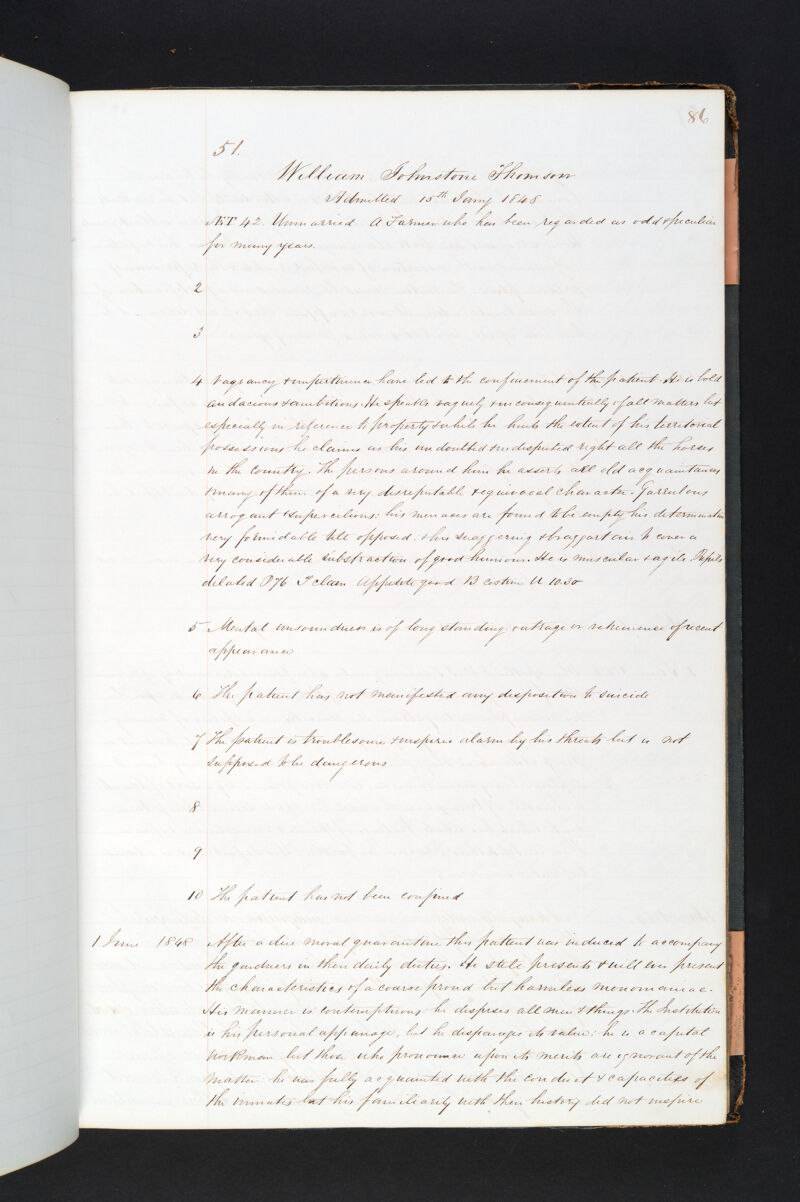 86
51.
William Johnstone Thomson
Admitted 15th Jany 1848
ÆT 42. Unmarried A Farmer who has been regarded as odd & peculiar
for many years.
2
3
4 Vagrancy & impertinence have led to the confinement of the patient. He is bold
audacious & ambitious. He speaks vaguely & inconsequentially of all matters but
especially in reference to property & while he hints the extent of his territorial
possessions he claims as his undoubted & undisputed right all the horses
in the country. The persons around him he asserts are all old acquaintances
& many of them of a very disreputable & equivocal character. Garrulous
arrogant & supercilious: his menaces are found to be empty his determination
very formidable till opposed: & his swaggering & braggart air to cover a
very considerable substraction of good humour. He is muscular & agile. Pupils
dilated P 76 T clean Appetite good B costive U 1030
5 Mental unsoundness is of long standing: outrage or vehemence of recent
appearance
6 The patient has not manifested any disposition to suicide
7 The patient is troublesome & inspires alarm by his threats but is not
supposed to be dangerous
8
9
10 The patient has not been confined
1 June 1848 After a due moral quarantine this patient was induced to accompany
the gardners in their daily duties. He still presents & will ever present
the characteristics of a coarse proud but harmless monomaniac.
His manner is contemptuous: he despises all men & things. The Institution
is his personal appanage, but he disparages its value: he is a capital
workman but those who pronounce upon its merits are ignorant of the
matter: he was fully acquainted with the conduct & capacities of
the inmates but his familiarity with their history did not inspire